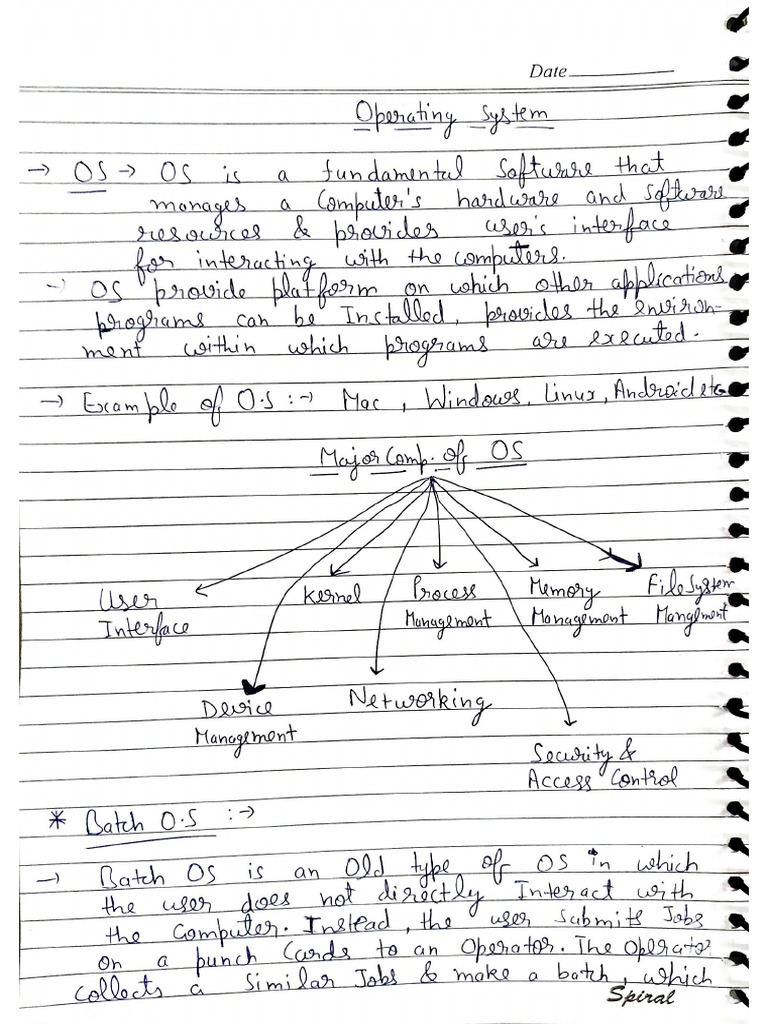 Date
Operating System
→ OS → OS is a fundamental Software that
manages a Computer's hardware and software
resources & provides user's interface
for interacting with the computers.
→ OS provide platform on which other applications
programs can be Installed, provides the environ-
ment within which programs are executed.
→ Example of O.S :→ Mac, Windows, Linux, Android etc
Major Comp. of OS
User Interface
Kernel
Process Management
Memory Management
File System Mangement
Device Management
Networking
Security & Access Control
* Batch O.S :→
→ Batch OS is an Old type of OS in which
the user does not directly Interact with
the Computer. Instead, the user submits Jobs
on a punch Cards to an Operator. The Operator
collects a similar Jobs & make a batch, which
Spiral